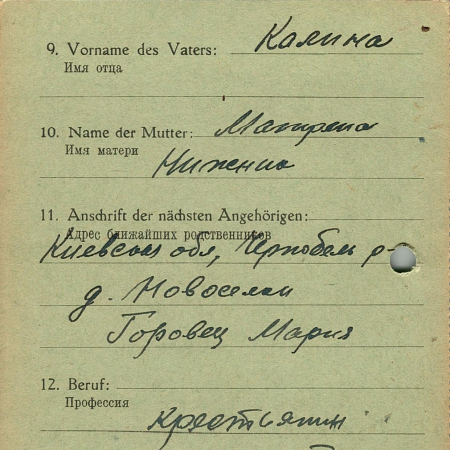 9. Vorname des Vaters: Калина
Имя отца
10. Name der Mutter: Матрена
Имя матери
Ниженко
11. Anschrift der nächsten Angehörigen:
Адрес ближайших родственников
Киевская обл, Чернобель р-
д. Новоселки
Горовец Мария
12. Beruf:
Профессия
Крестьянин